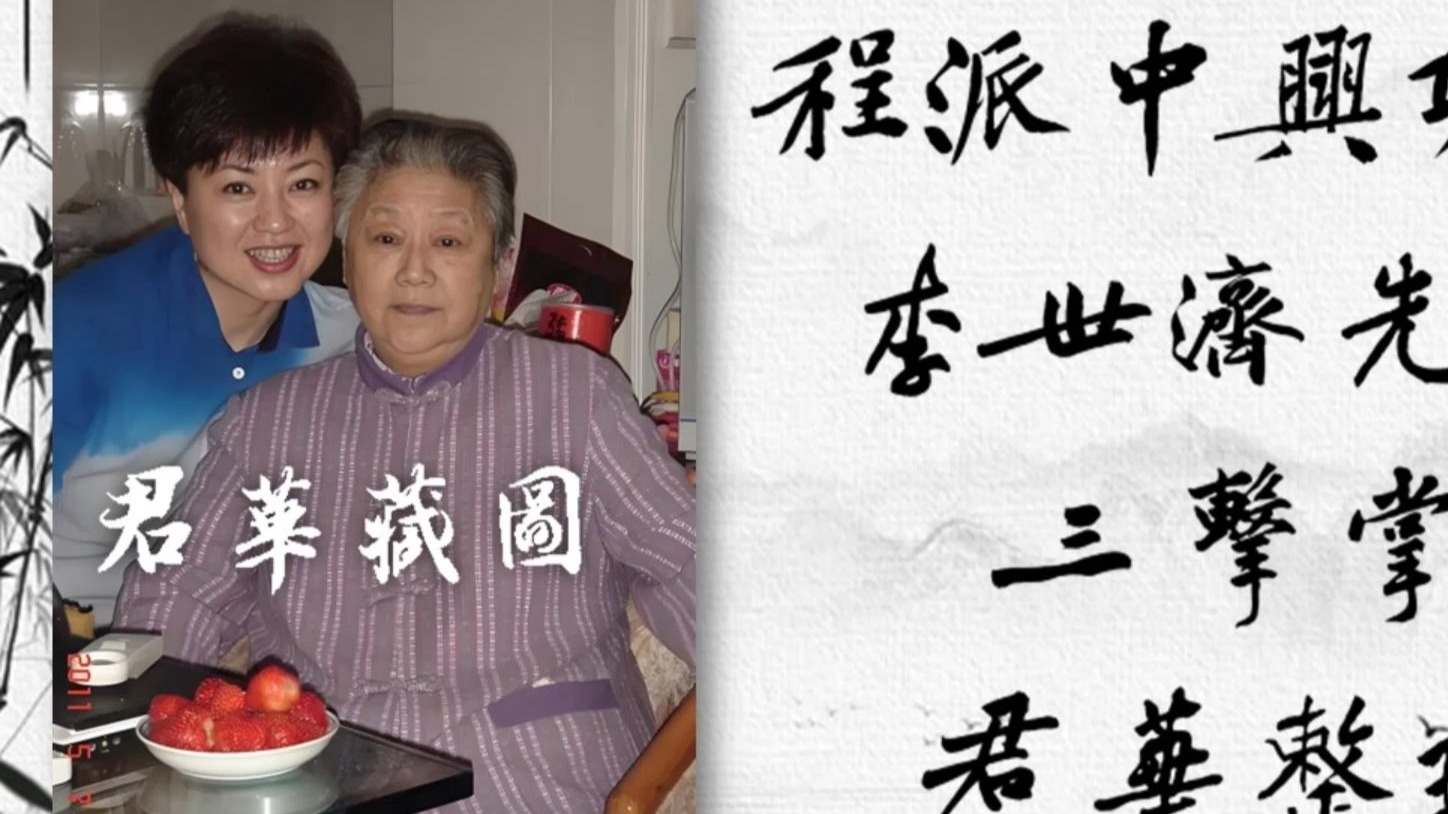 君華藏圖
程派中興
李世濟先
三擊掌
君華整
張
2011 5